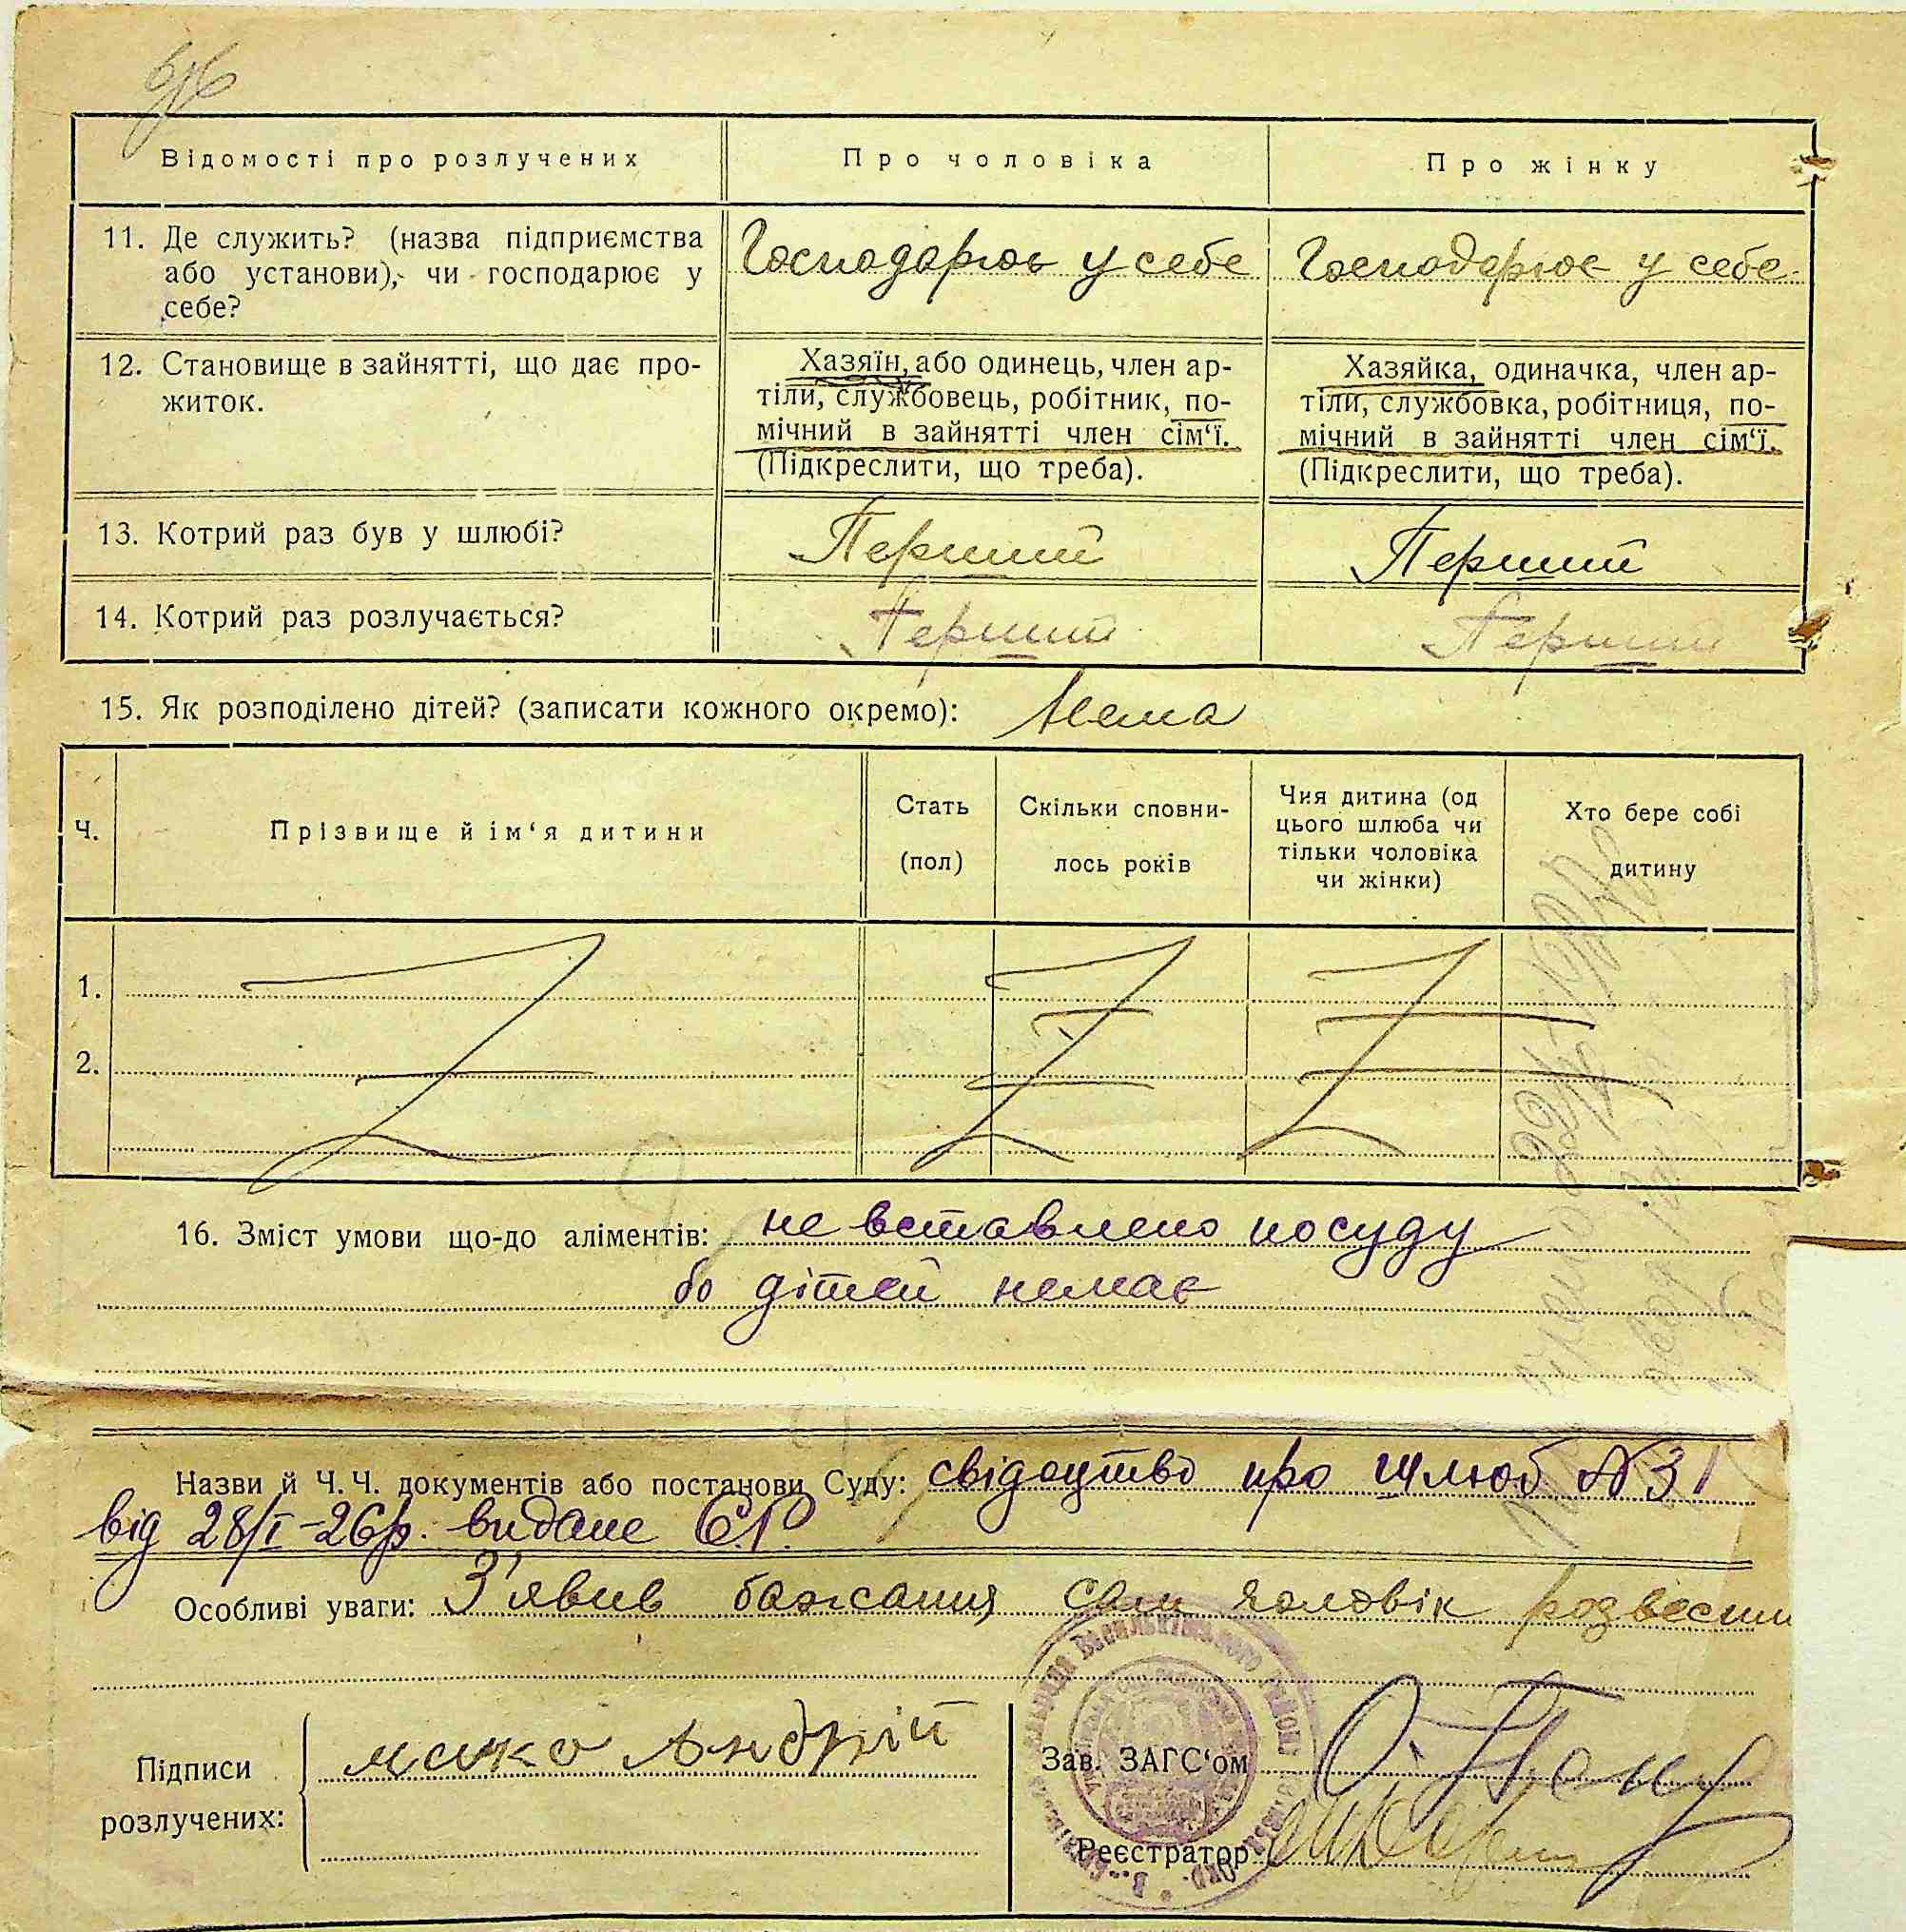 Відомості про розлучених
Про чоловіка
Про жінку
11. Де служить? (назва підприємства
або установи), чи господарює у
себе?
Господарює у себе
Господарює у себе
12. Становище в зайнятті, що дає про-
житок.
Хазяїн, або одинець, член ар-
тіли, службовець, робітник, по-
мічний в зайнятті член сім‘ї.
(Підкреслити, що треба).
Хазяйка, одиначка, член ар-
тіли, службовка, робітниця, по-
мічний в зайнятті член сім‘ї.
(Підкреслити, що треба).
13. Котрий раз був у шлюбі?
Перший
Перший
14. Котрий раз розлучається?
Перший
Перший
15. Як розподілено дітей? (записати кожного окремо): Нема
Ч.
Прізвище й ім‘я дитини
Стать
(пол)
Скільки сповни-
лось років
Чия дитина (од
цього шлюба чи
тільки чоловіка
чи жінки)
Хто бере собі
дитину
1.
2.
16. Зміст умови що-до аліментів: не вставлено посуду
бо дітей немає
Назви й Ч. Ч. документів або постанови Суду: свідоцтво про шлюб №31
від 28/I-26р. видане С.Р.
Особливі уваги: З'явив бажання сам чоловік розвести
Підписи
розлучених:
Андрій
Зав. ЗАГС‘ом
Реєстратор